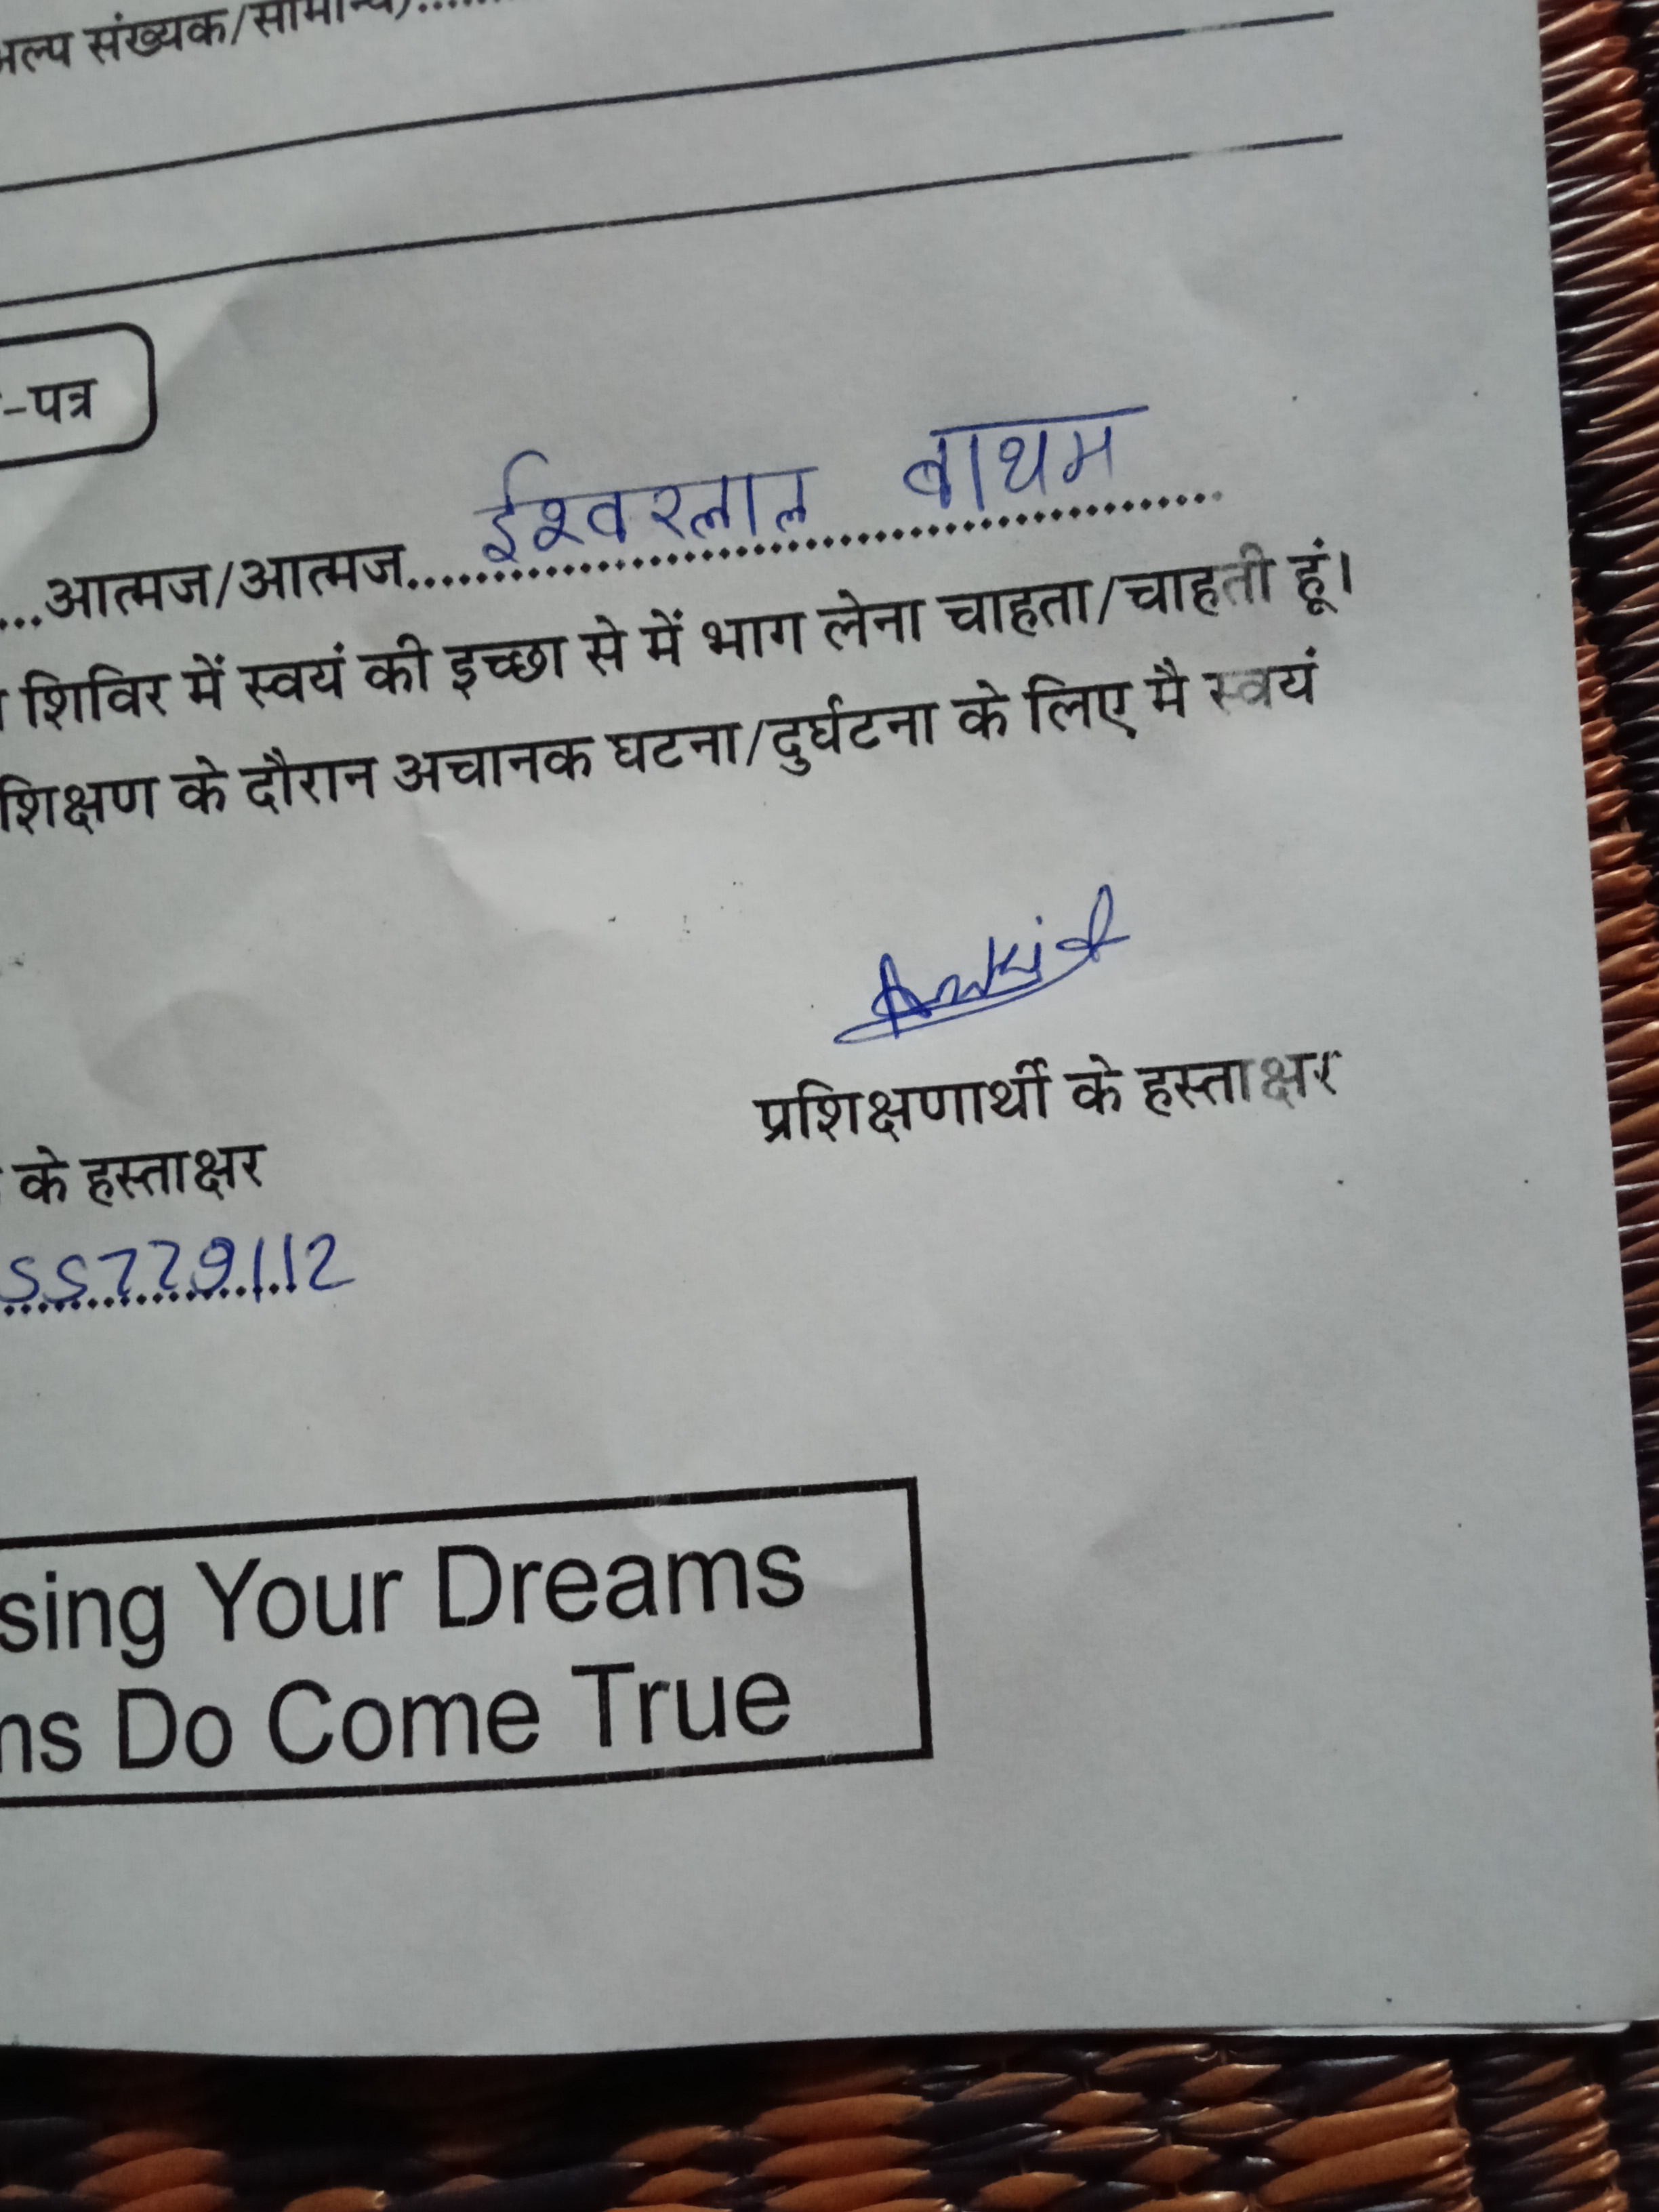 अल्प संख्यक/सामान्य)......
-पत्र
...आत्मज/आत्मज....ईश्वरलाल बाथम
शिविर में स्वयं की इच्छा से में भाग लेना चाहता/चाहती हूं।
शिक्षण के दौरान अचानक घटना/दुर्घटना के लिए मै स्वयं
Ankit
प्रशिक्षणार्थी के हस्ताक्षर
के हस्ताक्षर
55779112
sing Your Dreams
ns Do Come True